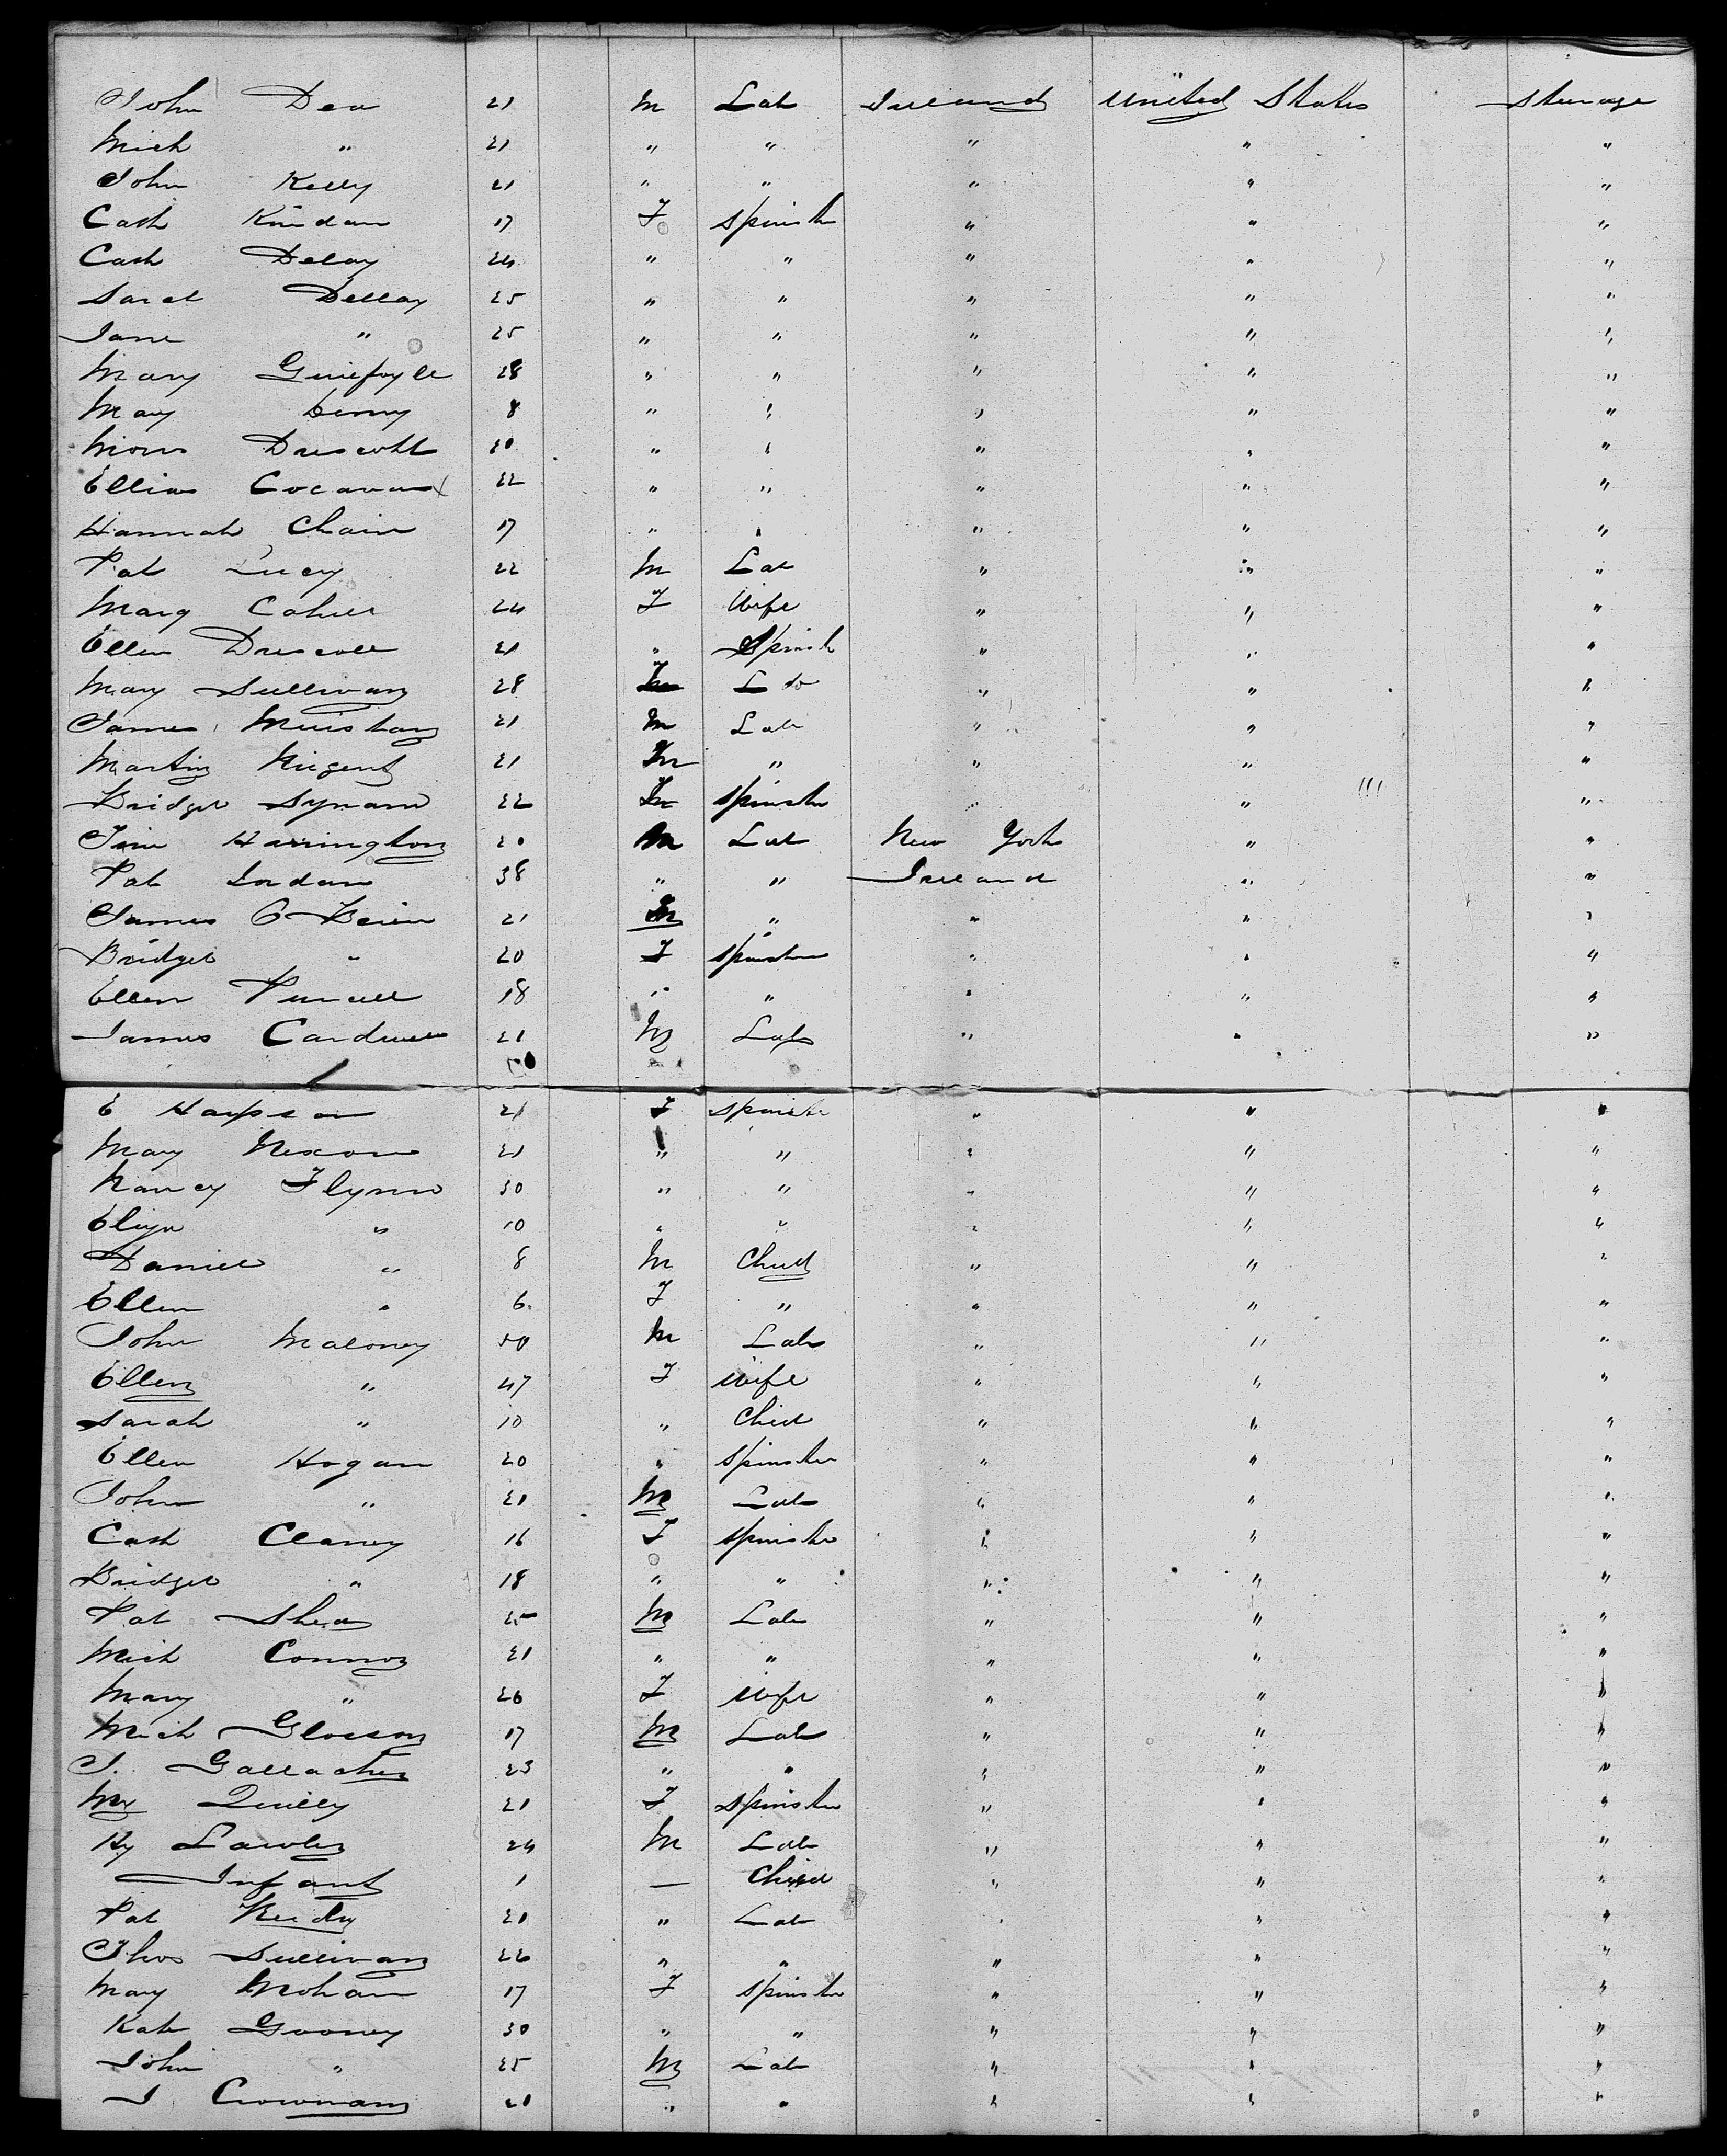 John Dea 21 M Lab Ireland United States Steerage
Mich " 21 " " " " "
John Kelly 21 " " " " "
Cath 17 F Spinster " " "
Cath Delay 24 " " " " "
Sarah Dellay 25 " " " " "
Jane " 25 " " " " "
Mary 28 " " " " "
Mary 8 " " " " "
Driscoll 20 " " " " "
22 " " " " "
Hannah Chain 17 " " " " "
Pat Lucy 22 M Lab " " "
Mary Cahill 24 F Wife " " "
Ellen Driscoll 21 " Spinst " " "
Mary Sullivan 28 " " "
James 21 M Lab " " "
Martin Nugent 21 M " " " "
Bridget Synan 22 Spinster " " "
Tim Harrington 20 M Lab New York " "
Pat Jordan 38 " " Ireland " "
James O Brien 21 M " " " "
Bridget " 20 F Spinster " " "
Ellen Purcell 18 " " " " "
James Cardwell 21 M Lab " " "
E 21 F Spinster " " "
Mary Nixon 21 " " " " "
Nancy Flynn 30 " " " " "
Eliza " 10 " " " " "
Daniel " 8 M Child " " "
Ellen " 6 F " " " "
John Maloney 50 M Lab " " "
Ellen " 47 F Wife " " "
Sarah " 10 " Child " " "
Ellen Hogan 20 " Spinster " " "
John " 21 M Lab " " "
Cath Clancy 16 F Spinster " " "
Bridget " 18 " " " " "
Pat Shea 25 M Lab " " "
Mich Connor 21 " " " " "
Mary " 26 F Wife " " "
Mich 17 M Lab " " "
J. Gallagher 23 " " " " "
My Quilty 21 F Spinster " " "
Hy Lawler 24 M Lab " " "
Infant 1 — Child " " "
Pat 21 " Lab " " "
Thos Sullivan 22 " " " " "
Mary Mohan 17 F Spinster " " "
Kate Gooney 30 " " " " "
John " 25 M Lab " " "
J 21 " " " " "